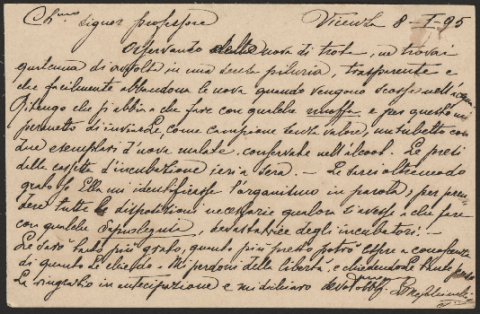 Ch.mo Signor professore Vicenza 8-I-95
Osservando delle uova di trota, ne trovai
qualcuna di avvolta in una densa peluria, trasparente e
che facilmente abbandona le uova quando vengono scosse nell'acqua
Ritengo che si abbia a che fare con qualche muffa e per questo mi
permetto di inviarLe, come campione senza valore, un tubetto con
due esemplari d'uova malate conservate nell'alcool. Le presi
dalla cassetta d'incubazione ieri a sera. — Le sarei oltremodo
grato se Ella mi identificasse l'organismo in parola, per pren-
dere tutte le disposizioni necessarie qualora si avesse a che fare
con qualche Saprolegnia, devastatrice degli incubatori! —
Le sarò tanto più grato, quanto più presto potrò essere a conoscenza
di quanto Le chiedo. — Mi perdoni della libertà, e chiedendoLe
La ringrazio in anticipazione e mi dichiaro